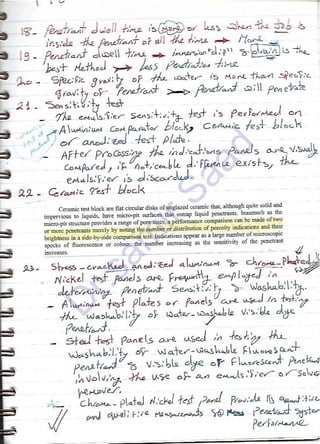 18- Penetrant dwell time is more or less when the Job is
inside the penetrant of all the time → More
19- Penetrant dwell time → immersion "dip" & drain is the
best Method → less Penetration time
20- Specific gravity of the water is More than specific
gravity of Penetrant → Penetrant will penetrate
21- Sensitivity test
The emulsifier sensitivity test is Performed on
- Aluminium Comparator block, Ceramic test block
or anodized test Plate.
- After Processing the indications Panels are visually
Compared, if noticeable difference exists, the
emulsifier is discarded.
22- Ceramic Test block
Ceramic test block are flat circular disks of unglazed ceramic that, although quite solid and
impervious to liquids, have micro-pit surfaces that entrap liquid penetrants. Inasmuch as the
micro-pit structure provides a range of pore sizes, a performance comparison can be made of two
or more penetrants merely by noting the number or distribution of porosity indications and their
brightness in a side-by-side comparison test. Indications appear as a large number of microscopic
specks of fluorescence or colour, the number increasing as the sensitivity of the penetrant
increases.
23- Stress-cracked anodized aluminum & Chrome-plated
Nickel test panels are frequently employed in
determining Penetrant Sensitivity & Washability.
- Aluminum test plates or Panels are used in testing
the washability of water-washable visible dye
Penetrant.
- Steel test Panels are used in testing the
washability of water-washable Fluorescent
penetrant & visible dye or Fluorescent Penetrant
involving the use of an emulsifier or solvent
remover.
- Chrome-Plated Nickel test Panel Provide
and qualitive measurements Penetrant System
Performance